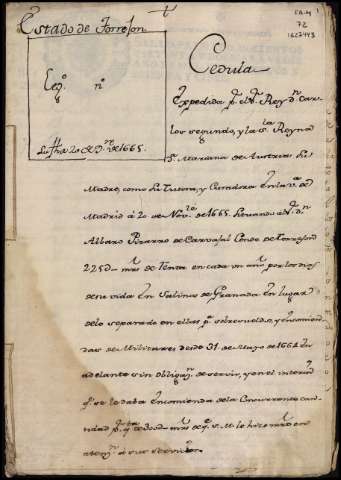 Estado de Torrejon
Leg.º n.º
Su fha 20 de N.re de 1665.
CA-M
72
Cedula
Expedida p.r el S.r Rey D.n Car-
los segundo, y la S.ra Reyna
D.ª Mariana de Austria su
Madre, como su Tutora, y Curadora en la v.ª de
Madrid á 20 de Nov.re de 1665. librando á D.n
Albaro Pizarro de Carvajal Conde de Torrejon
225D mrs de renta en cada un año p.r los dias
de su vida en Salinas de Granada en lugar
de lo separado en ellas p.ª sobresueldos, y encomien-
das de Militares desde 31 de Mayo de 1664 en
adelante sin obligaz.n de servir, y en el interin
q.e se le daba encomienda de la
tidad
atenz.n á sus servicios.